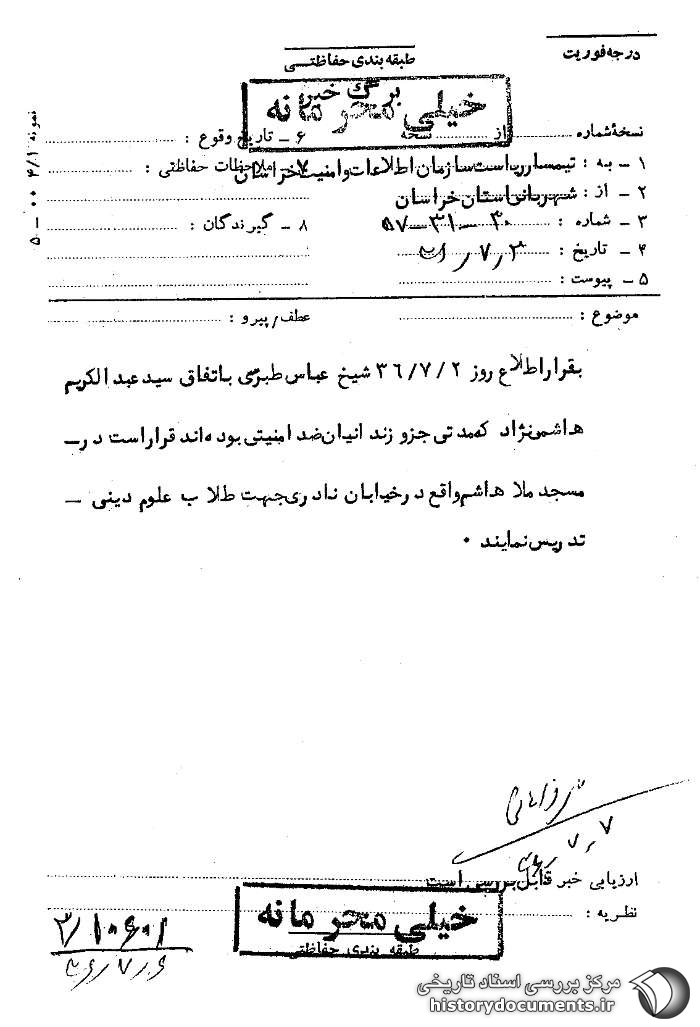 درجه فوریت
طبقه بندی حفاظتی
برگ خبر
خیلی محرمانه
نسخهٔ شماره از نسخه
۱ ــ به : تیمسار ریاست سازمان اطلاعات و امنیت خراسان
۲ ــ از : شهربانی استان خراسان
۳ ــ شماره : ۳۰ــ۳۱ــ۵۷
۴ ــ تاریخ :
۵ ــ پیوست :
۶ ــ تاریخ وقوع :
۷ــ ملاحظات حفاظتی :
۸ ــ گیرندگان :
نمونه ۴/۱
۵ ــ ۰۰
موضوع :
عطف/پیرو :
بقرار اطلاع روز ۳۶/۷/۲ شیخ عباس طبرسی باتفاق سید عبدالکریم
هاشمی نژاد که مدتی جزو زندانیان ضد امنیتی بوده اند قرار است در ــ
مسجد ملا هاشم واقع در خیابان نادری جهت طلاب علوم دینی ــ
تدریس نمایند ۰
۷٫۷
ارزیابی خبر قابل بررسی است
نظریه :
خیلی محرمانه
طبقه بندی حفاظتی
۳/۱۰۶۰۱
۳۶٫۷٫۶
مرکز بررسی اسناد تاریخی
historydocuments.ir